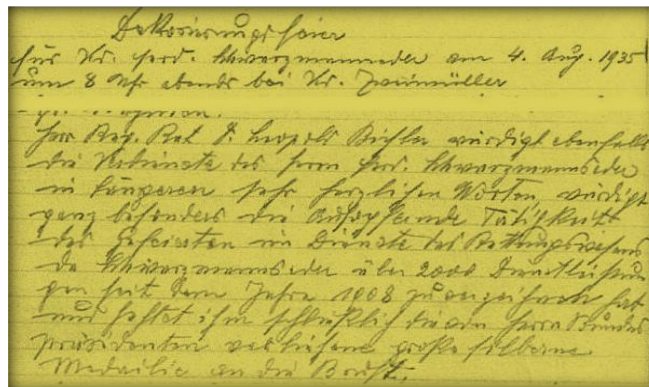 Dekorierungsfeier
für Hr. Ferd. Schwarzmannseder am 4. Aug. 1935
um 8 Uhr abends bei Hr. Zweimüller
Herr Reg. Rat D. Leopold Bichler würdigt ebenfalls
die Verdienste des Herrn Ferd. Schwarzmannseder
in längeren sehr herzlichen Worten, würdigt
ganz besonders die aufopfernde Tätigkeit
des Gefeierten im Dienste des Rettungswesens
da Schwarzmannseder über 2000 Dienstleistun
gen seit dem Jahre 1908 zu verzeichnen hat
und heftet ihm schließlich die vom Herrn Bundes
präsidenten verliehene große silberne
Medaille an die Brust.